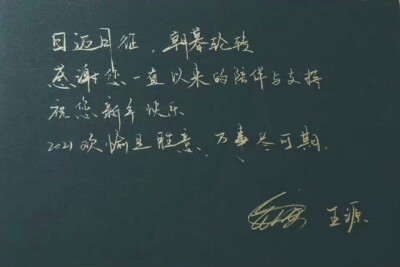 日迈月征，朝暮轮转
感谢您一直以来的陪伴与支持
祝您新年快乐
2021欢愉且胜意，万事尽可期.
王源